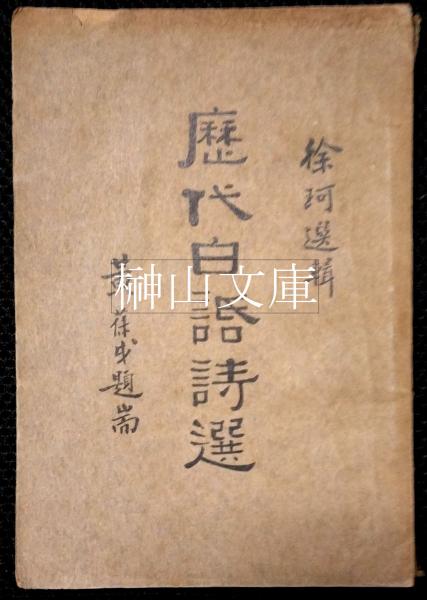 徐珂選輯
歷代白話詩選
黃葆戉題耑
榊山文庫